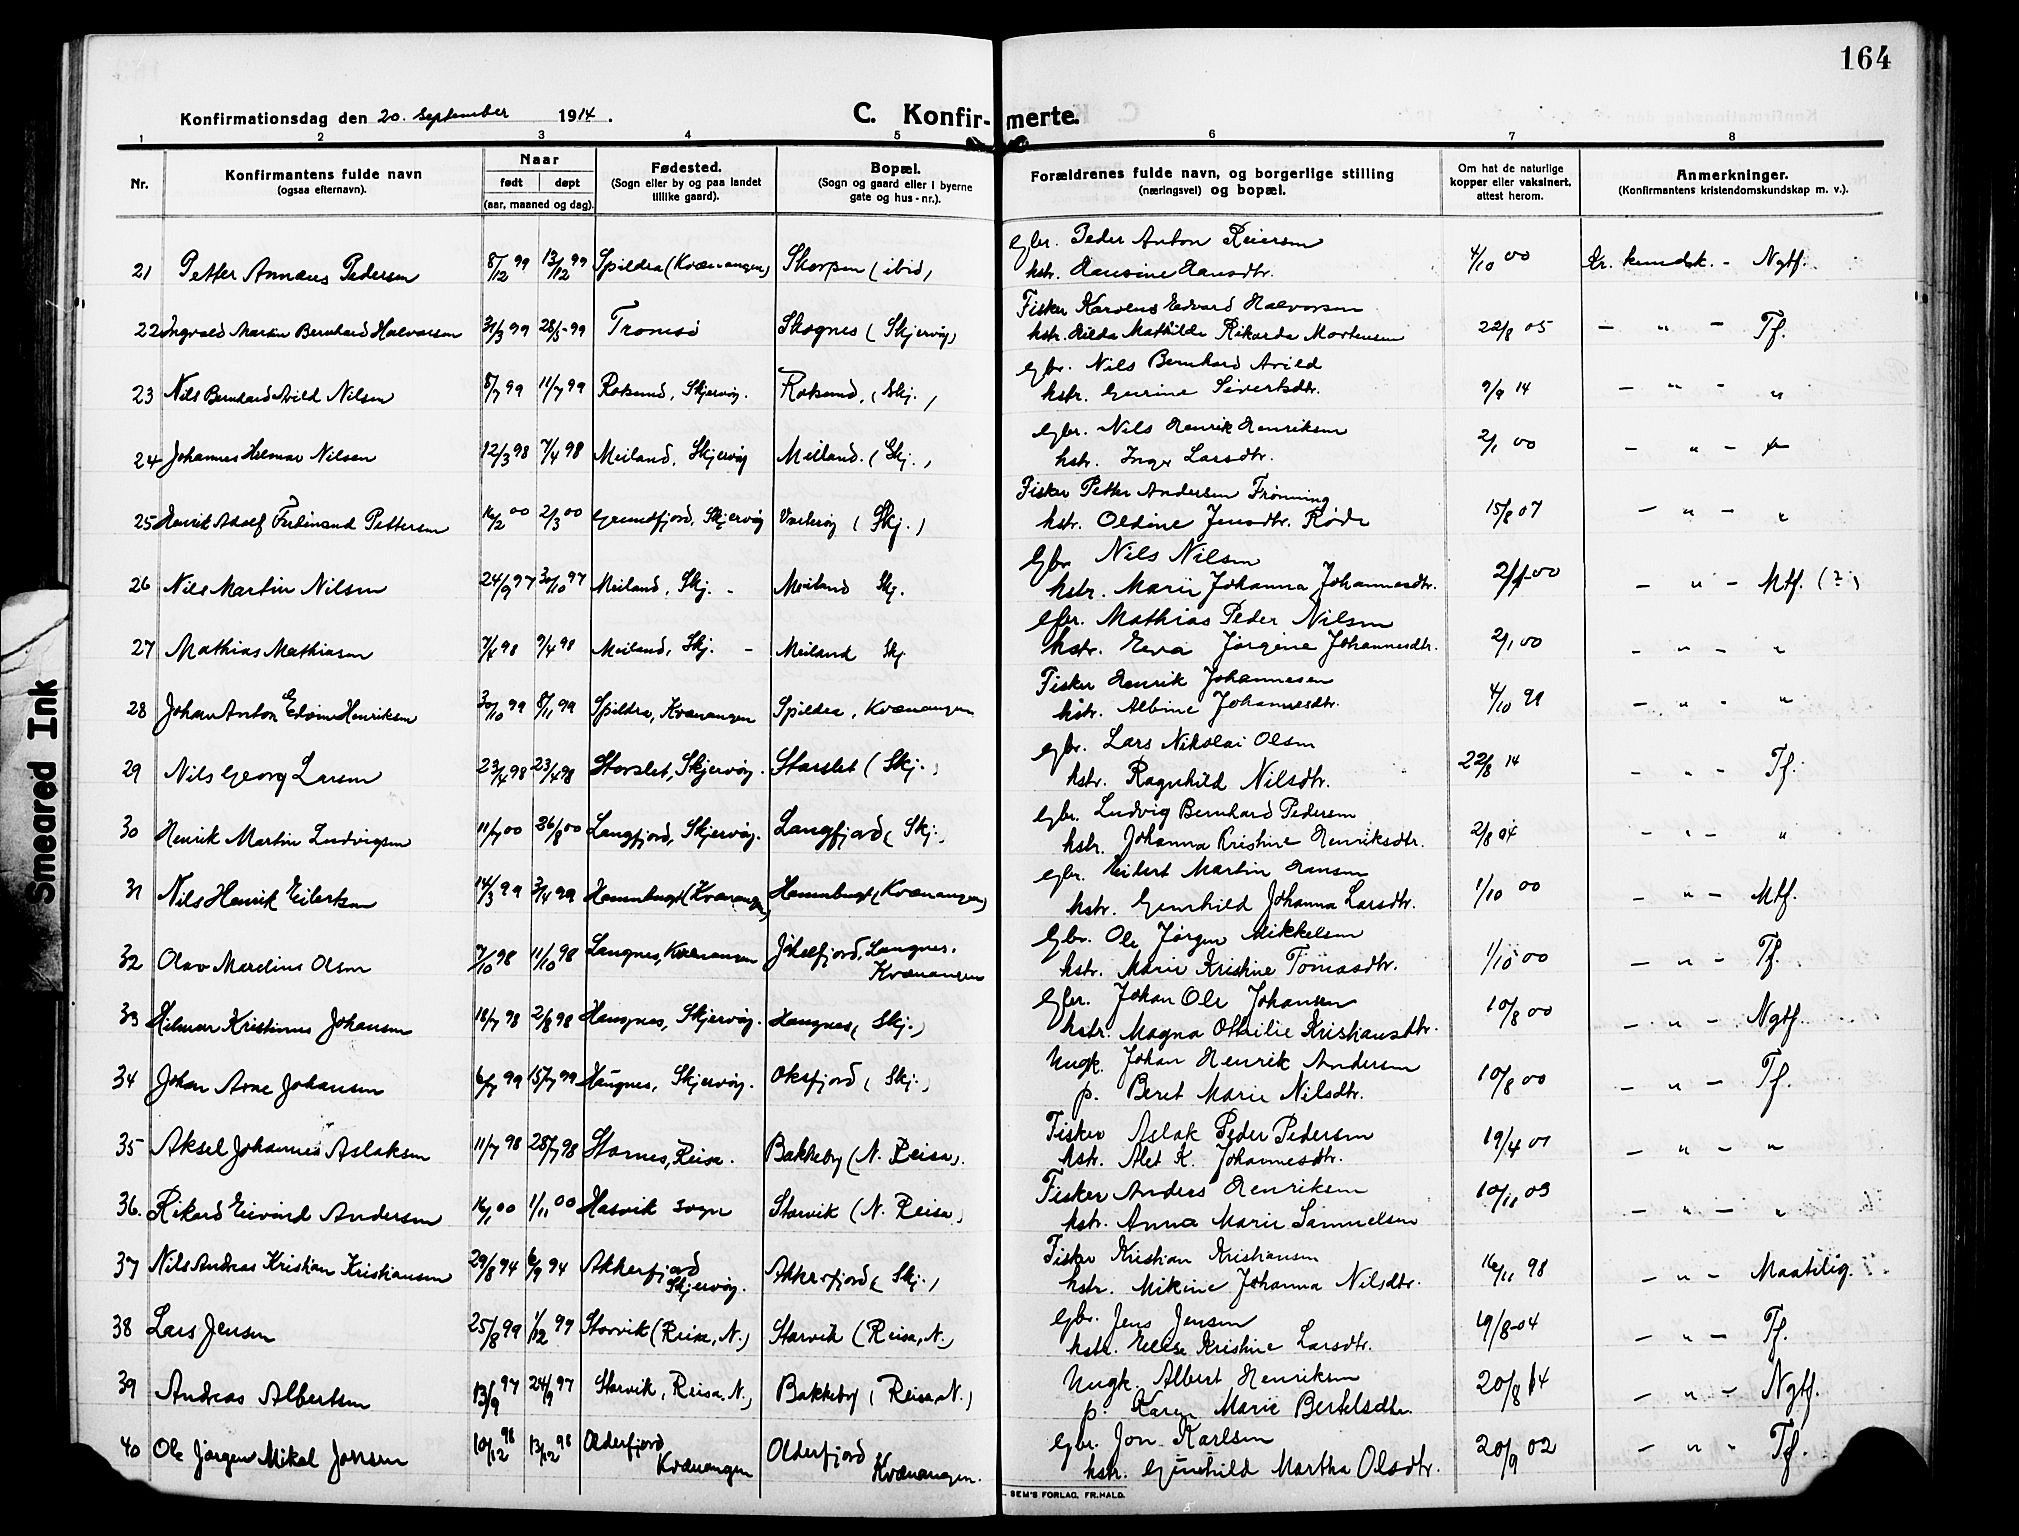 164
Konfirmationsdag den 20. september 1914.
C. Konfirmerte.
1 2 3 4 5 6 7 8
Nr.
Konfirmantens fulde navn
(ogsaa efternavn).
Naar
født døpt
(aar, maaned og dag).
Fødested.
(Sogn eller by og paa landet
tillike gaard).
Bopæl.
(Sogn og gaard eller i byerne
gate og hus-nr.).
Forældrenes fulde navn, og borgerlige stilling
(næringsvei) og bopæl.
Om hat de naturlige
kopper eller vaksinert,
attest herom.
Anmerkninger.
(Konfirmantens kristendomskundskap m. v.).
Gbr. Peder Anton Reiersen
21 Petter Annæus Pedersen 8/12 99 13/12 99 Spildra (Kvænangen) Skorpen (ibid) hstr. Hansine Hansdtr. 4/10 00 Kr. kundsk. - Ngtf.
Fisker Karolus Edvard Halvorsen
22 Ingvald Martin Bernhard Halvorsen 31/3 99 28/5 99 Tromsø Skognes (Skjervøy) hstr. Hilda Mathilde Rikarda Mortensen 22/8 05 - " - Tf.
Gbr. Nils Bernhard Arild
23 Nils Bernhard Arild Nilsen 8/7 99 11/7 99 Rotsund, Skjervøy. Rotsund, (Skj.) hstr. Gurine Sivertsdtr. 9/9 14 - " - "
Gbr. Nils Henrik Henriksen
24 Johannes Hilmar Nilsen 12/3 98 7/4 98 Meiland, Skjervøy Meiland. (Skj.) hstr. Inger Larsdtr. 2/1 00 - " - "
Fisker Petter Andersen Frønning
25 Henrik Adolf Ferdinand Pettersen 16/2 00 2/3 00 Grundfjord, Skjervøy (Skj.) hstr. Oldine Jensdtr. Røde 15/8 07 - " - "
Gbr. Nils Nilsen
26 Nils Martin Nilsen 24/9 97 30/10 97 Meiland, Skj. - Meiland Skj. hstr. Marie Johanna Johannesdtr. 2/1-00 - " - Mtf. (?)
Gbr. Mathias Peder Nilsen
27 Mathias Mathiasen 7/4 98 9/4 98 Meiland, Skj. - Meiland Skj hstr. Eva Jørgine Johannesdtr. 2/1 00 - " - "
Fisker Henrik Johannesen
28 Johan Anton Edvin Henriksen 30/10 99 8/11 99 Spildra, Kvænangen Spildra, Kvænangen hstr. Albine Johannesdtr. 4/10 99 - " - "
Gbr. Lars Nikolai Olsen
29 Nils Georg Larsen 23/4 98 23/4 98 Storslet, Skjervøy. Storslet (Skj.) hstr. Ragnhild Nilsdtr. 22/8 14 - " - Tf.
Gbr. Ludvig Bernhard Pedersen
30 Henrik Martin Ludvigsen 11/7 00 26/8 00 Langfjord, Skjervøy. Langfjord (Skj.) hstr. Johanna Kristine Henriksdtr. 2/8 04 - " - "
Gbr. Eilert Martin Hansen
31 Nils Henrik Eilertsen 14/3 99 3/4 99 Hamnbugt (Kvænangen) Hamnbugt (Kvænangen) hstr. Gunhild Johanna Larsdtr. 1/10 00 - " - Mtf.
Gbr. Ole Jørgen Mikkelsen
32 Olav Mardius Olsen 7/10 98 11/10 98 Langnes, Kvænangen Jøkelfjord, Langnes. Kvænangen hstr. Marie Kristine Tomasdtr. 1/10 00 - " - Tf.
Gbr. Johan Ole Johansen
33 Hilmar Kristinus Johansen 18/7 98 2/8 98 Haugnes, Skjervøy. Haugnes, (Skj.) hstr. Magna Othilie Kristiansdtr. 10/8 00 - " - Ngtf.
Ungk. Johan Henrik Andersen
34 Johan Arne Johansen 6/7 99 15/7 99 Haugnes, Skjervøy. Oksfjord (Skj.) p. Beret Marie Nilsdtr. 10/8 00 - " - Tf.
Fisker Aslak Peder Pedersen
35 Aksel Johannes Aslaksen 11/7 98 28/7 98 Stornes, Reisa. Bakkeby (N. Reisa). hstr. Alet K. Johannesdtr. 19/4 01 - " - "
Fisker Anders Henriksen
36. Rikard Eivind Andersen 16/1 00 1/11 00 Hasvik sogn Storvik (N. Reisa) hstr. Anna Marie Samuelsen 10/11 03 - " - "
Fisker Kristian Kristiansen
37 Nils Andreas Kristian Kristiansen 29/8 94 6/9 94 Akkerfjord Skjervøy. Akkerfjord (Skj.) hstr. Mikine Johanna Nilsdtr. 16/11 98 - " - Maatelig.
Gbr. Jens Jensen
38 Lars Jensen 25/8 99 1/12 99 Storvik (Reisa, N.) Storvik (Reisa, N.) hstr. Elise Kristine Larsdtr. 19/8-04 - " - Tf.
Ungk. Albert Henriksen
39 Andreas Albertsen 13/9 97 24/9 97 Storvik, Reisa. N.) Bakkeby (Reisa, N.) p. Karen Marie Bertelsdtr. 20/8 14 - " - Ngtf.
Gbr. Jon Karlsen
40 Ole Jørgen Mikal Jonsen 10/12 98 13/12 98 Olderfjord Kvænangen Olderfjord Kvænangen. hstr. Gunhild Martha Olsdtr. 20/9 02 - " - Tf.
SEM'S FORLAG, FR.HALD.
Smeared Ink